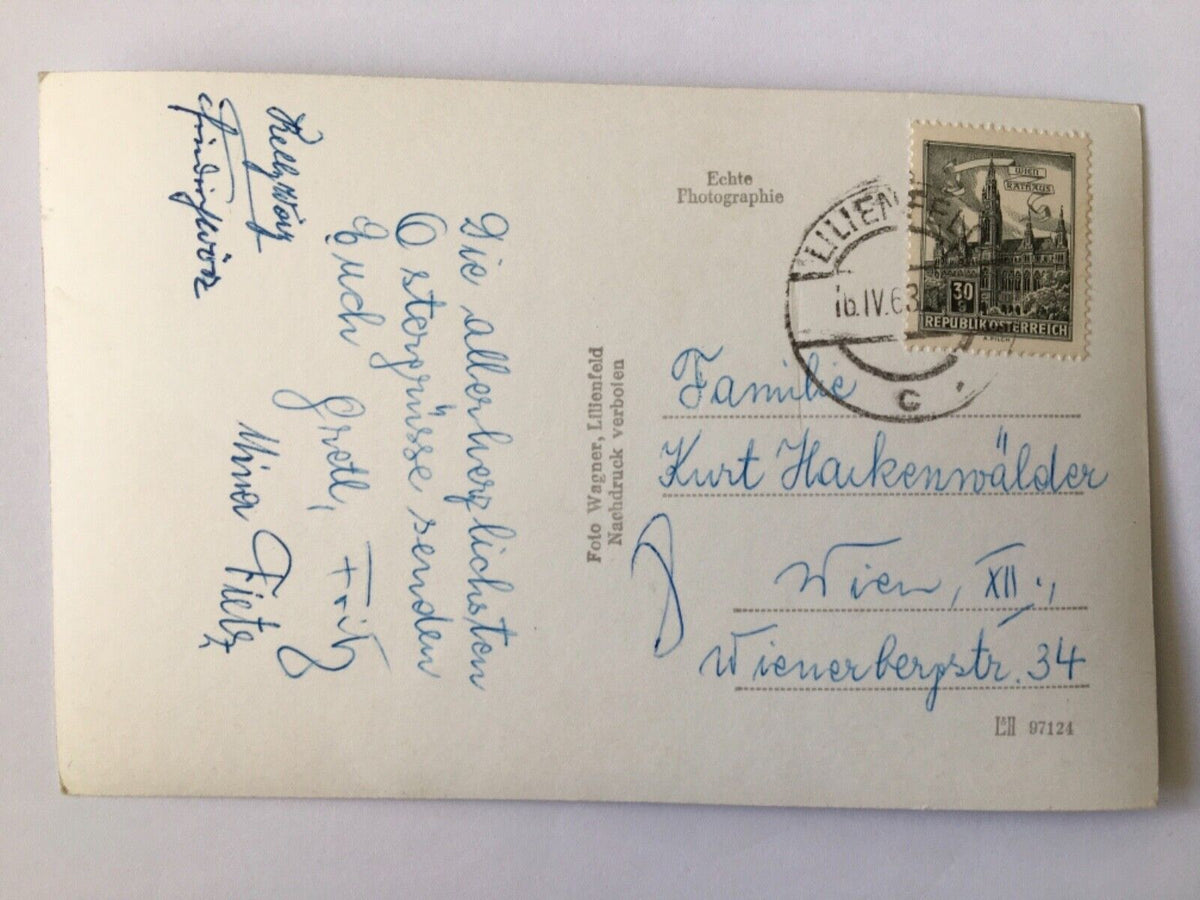 Die allerherzlichsten
Ostergrüsse senden
Euch
Gretl, Fritz
Mina Fietz
Echte
Photographie
Foto Wagner, Lilienfeld
Nachdruck verboten
WIEN
RATHAUS
30
g
REPUBLIK ÖSTERREICH
A. PILCH
LILIENFELD
16.IV.63
C
Familie
Kurt Hackenwälder
Wien, XII.,
Wienerbergstr. 34
L&H 97124